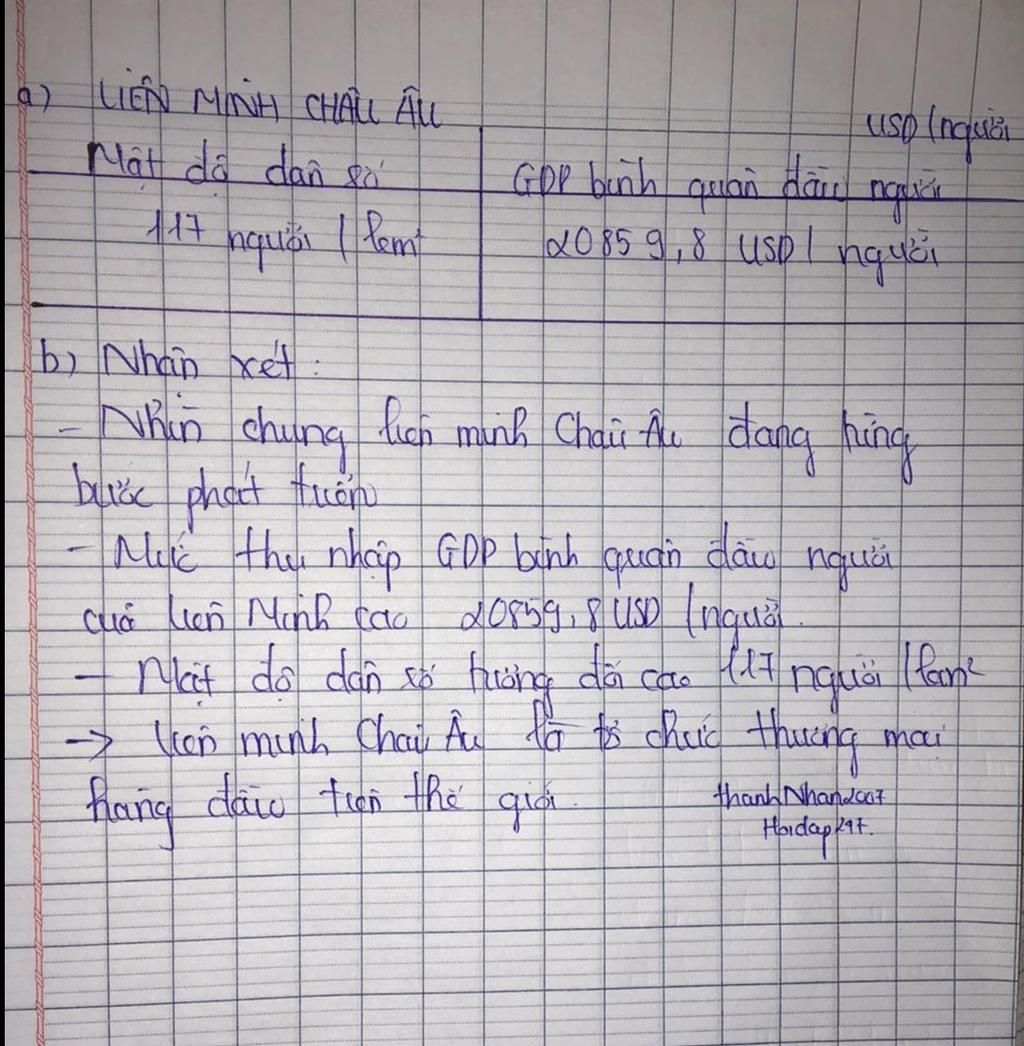 a) LIÊN MINH CHÂU ÂU
USD/người
Mật độ dân số
GDP bình quân đầu người
117 người / km²
20859,8 USD/ người
b) Nhận xét:
- Nhìn chung liên minh Châu Âu đang từng
bước phát triển
- Mức thu nhập GDP bình quân đầu người
của liên Minh cao 20859,8 USD/người.
- Mật độ dân số tương đối cao 117 người /km²
→ liên minh Châu Âu là tổ chức thương mại
hàng đầu trên thế giới.
thanhNhan2007
Hoidap247.